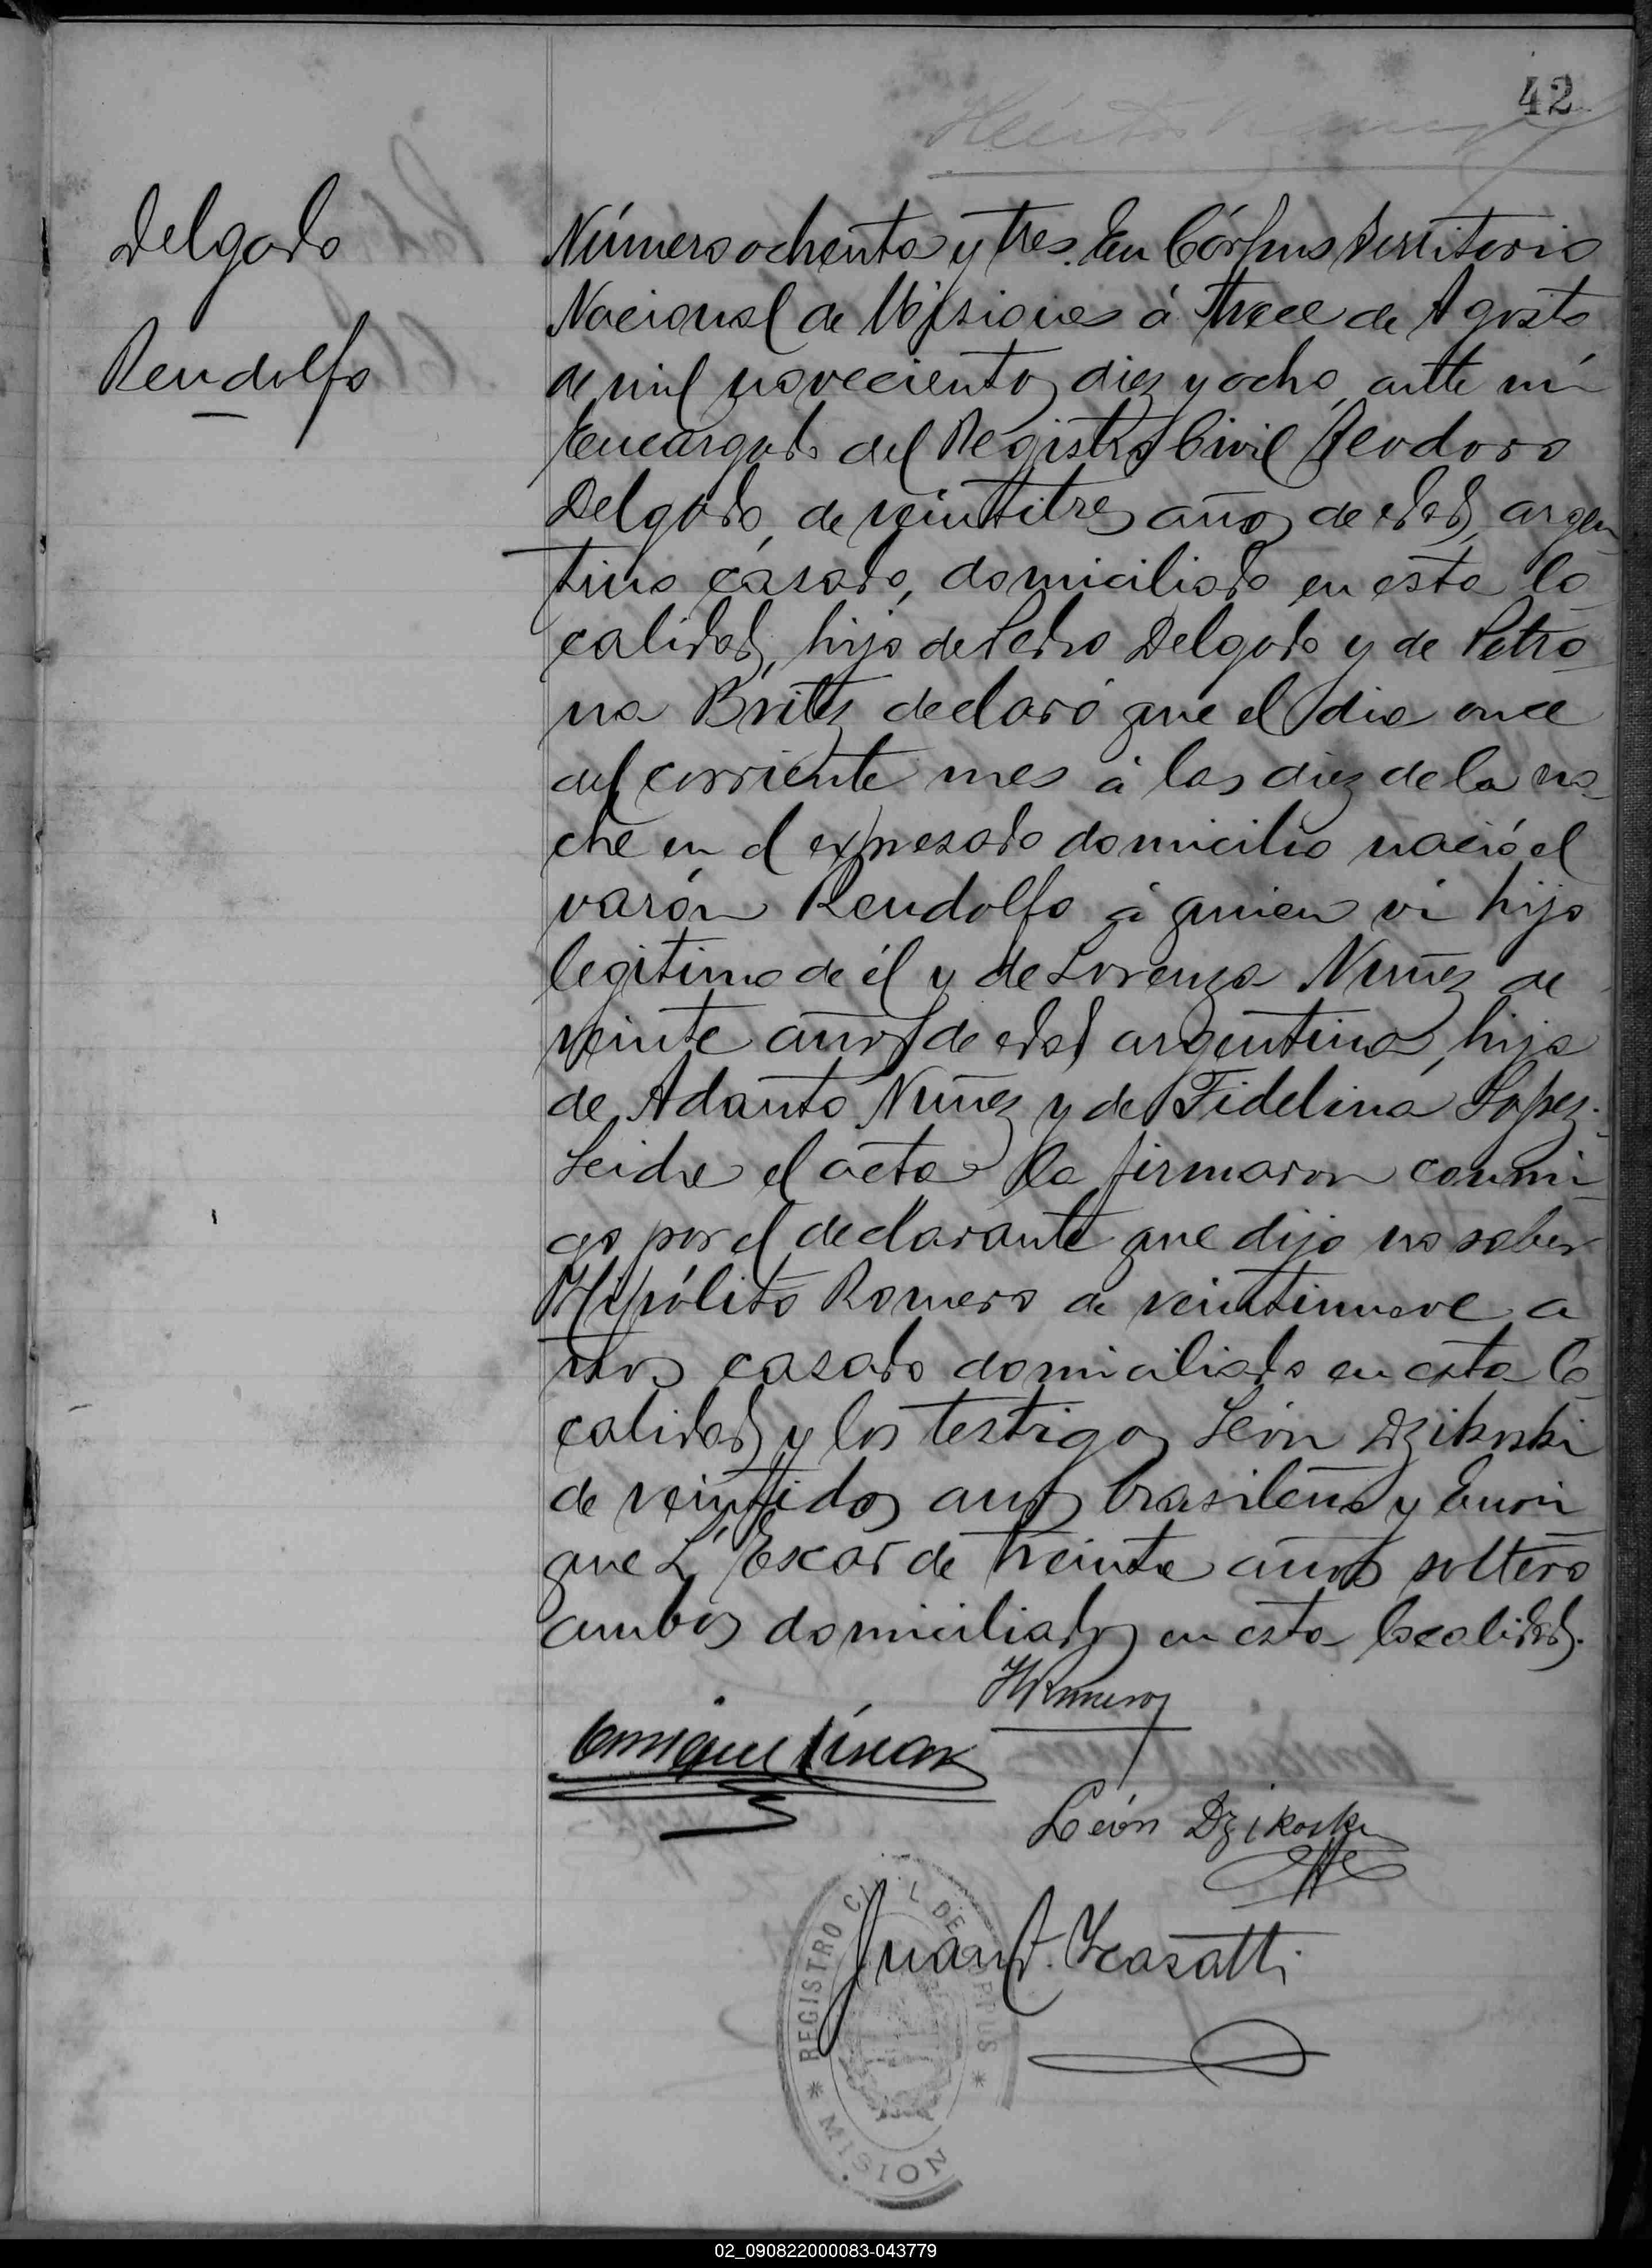 42
Delgado
Rendolfo
Número ochenta y tres. En Córpus Territorio
Nacional de Misiones á trece de Agosto
de mil novecientos diez y ocho, ante mí
Encargado del Registro Civil Teodoro
Delgado, de veintitres años de edad, argen
tino casado, domiciliado en esta lo
calidad, hijo de Pedro Delgado y de Petro
na Britez declaró que el dia once
del corriente mes á las diez de la no
che en el expresado domicilio nació el
varón Rendolfo á quien vi hijo
legitimo de él y de Lorenza Nuñez de
veinte años de edad argentina, hija
de Adanto Nuñez y de Fidelina Lopez.
Leida el acta la firmaron conmi
go por el declarante que dijo no saber
Hipólito Romero de veintinueve a
ños casado domiciliado en esta lo
calidad y los testigos León Dzikoski
de veintidos años brasileño y Enri
que L. Escar de treinta años soltero
ambos domiciliados en esta localidad.
HRomero
Enrique
León Dzikoski
Juan
REGISTRO CIVIL DE CORPUS
MISION
02_090822000083-043779